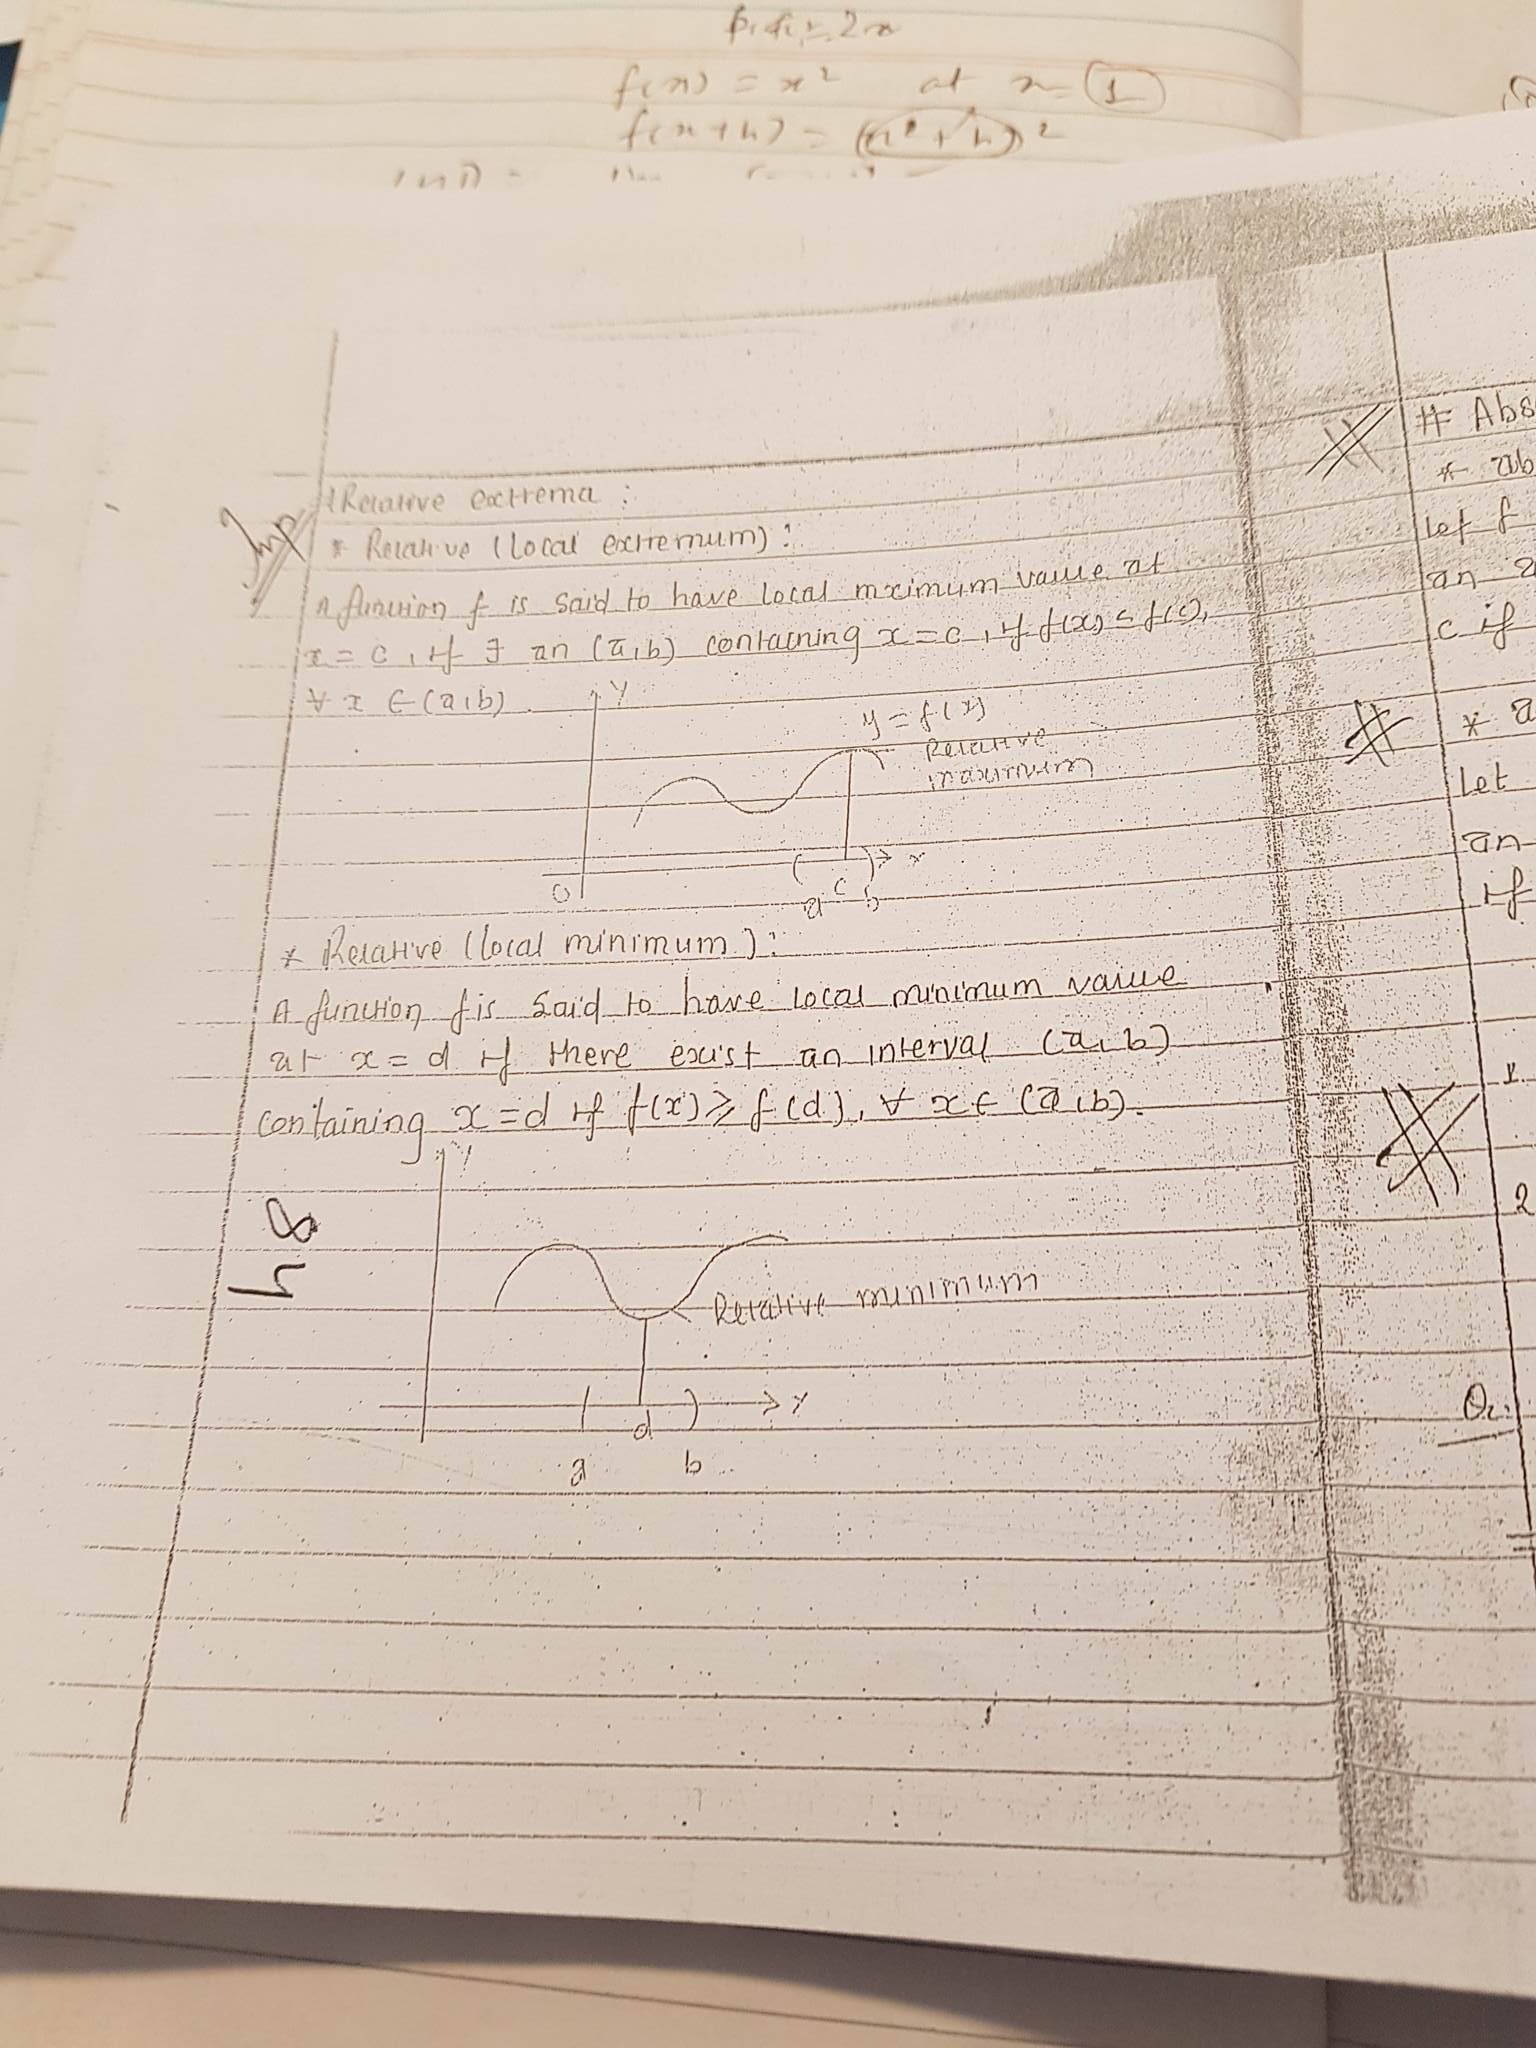 f(x) = x² at x = 1
f(x+h) = (x² + h)²
Imp
# Relative extrema :
* Relative (local extremum) :
A function f is said to have local mximum value at
x = c, if ∃ an (a,b) containing x = c, if f(x) ≤ f(c),
∀ x ∈ (a,b).
Y
y = f(x)
Relative
maximum
O
( ) x
a c b
* Relative (local minimum) :
A function f is said to have local minimum value
at x = d if there exist an interval (a,b)
containing x = d if f(x) ≥ f(d), ∀ x ∈ (a,b).
Y
Relative minimum
( ) x
d
a b
48
# Abs
* ab
let f
an a
c if
* a
Let
an
if
2